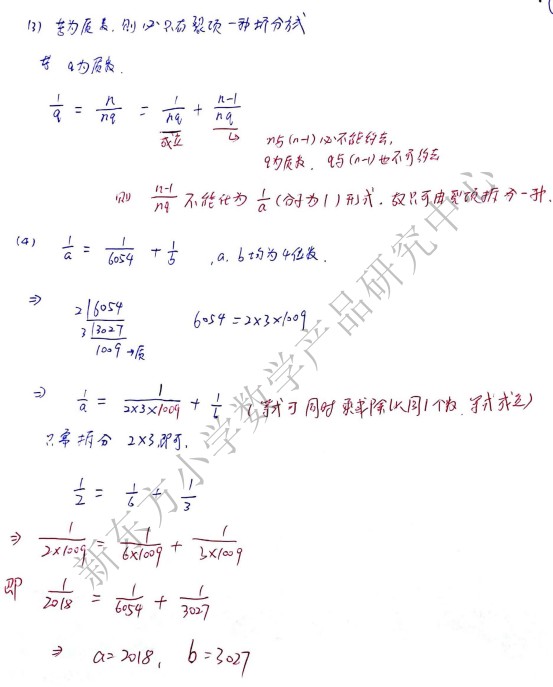 (3) 若为质数,则必只有裂项一种拆分方式
若 q为质数.
1/q = n/nq = 1/nq + (n-1)/nq
成立
n与(n-1)必不能约去,
q为质数, q与(n-1)也不可约去
则 (n-1)/nq 不能化为 1/a (分子为1) 形式. 故只可由裂项拆分一种.
(4) 1/a = 1/6054 + 1/b , a. b均为4位数.
⇒ 2|6054
3|3027
1009 → 质
6054 = 2×3×1009
⇒ 1/a = 1/(2×3×1009) + 1/b (等式可同时乘或除以同1个数, 等式成立)
只需拆分 2×3即可.
1/2 = 1/6 + 1/3
⇒ 1/(2×1009) = 1/(6×1009) + 1/(3×1009)
即 1/2018 = 1/6054 + 1/3027
⇒ a=2018, b=3027
新东方小学数学产品研究中心